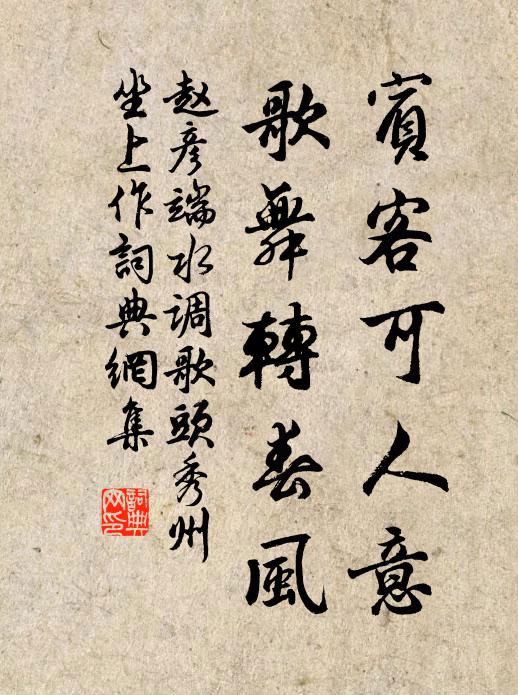 賓客可人意
歌舞轉春風
赵彦端水调歌頭秀州
坐上作詞典網集
詞典
网印